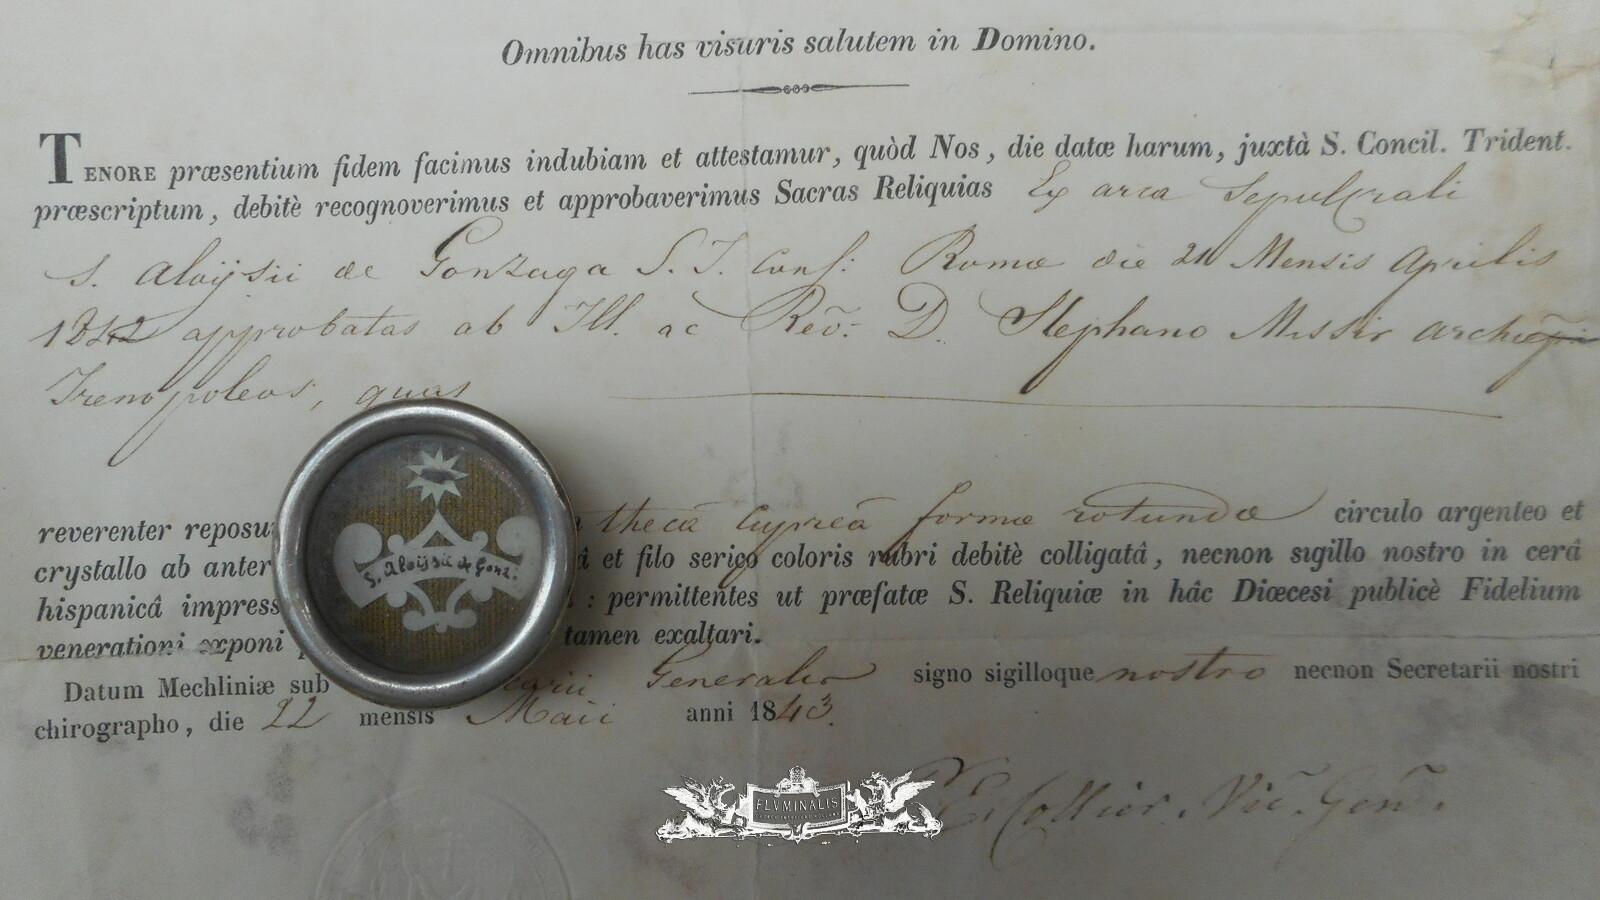 Omnibus has visuris salutem in Domino.
TENORE præsentium fidem facimus indubiam et attestamur, quòd Nos, die datæ harum, juxtà S. Concil. Trident.
præscriptum, debitè recognoverimus et approbaverimus Sacras Reliquias Ex arca Sepulcrali
S. Aloÿsii de Gonzaga S. J. Conf: Romæ die 21 Mensis Aprilis
1842 approbatas ab Ill. ac Rev̄: D. Stephano Missir archiep̄i
Irenopoleos, quas
reverenter reposu thecâ cypreâ formæ rotundæ circulo argenteo et
crystallo ab anter â et filo serico coloris rubri debitè colligatâ, necnon sigillo nostro in cerâ
hispanicâ impress : permittentes ut præfatæ S. Reliquiæ in hâc Diœcesi publicè Fidelium
venerationi exponi tamen exaltari.
S. Aloÿsii de Gonz.
Datum Mechliniæ sub carii Generalis signo sigilloque nostro necnon Secretarii nostri
chirographo, die 22 mensis Maii anni 1843.
Collier. Vic̄. Gen̄.
FLVMINALIS